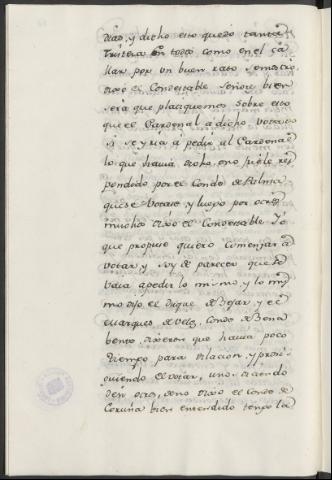 dias, y dicho esto quedo tanta
tristeza en todos como en el ca
llar, por un buen rato
dijo el Condestable Señores bien
será que platiquemos sobre esto
que el Cardenal a dicho, votado
si se yria a pedir al Cardenal
lo que havia dicho, e no fuele res
pondido por el Conde de Palma
que se votase, y luego por otros
muchos dijo el Condestable Yo
que propuse quiero comenzar a
votar, y soy de parecer que se
vaia a pedir lo mismo, y lo mis
mo dijo el Duque de Bejar y el
Marques de Velez, Conde de Bena
bente dijeron que havia poco
tiempo para dilacion, y prosi
guiendo el votar, uno diciendo
de si otros, de no dijo el Conde de
Coruña bien entendido tengo la